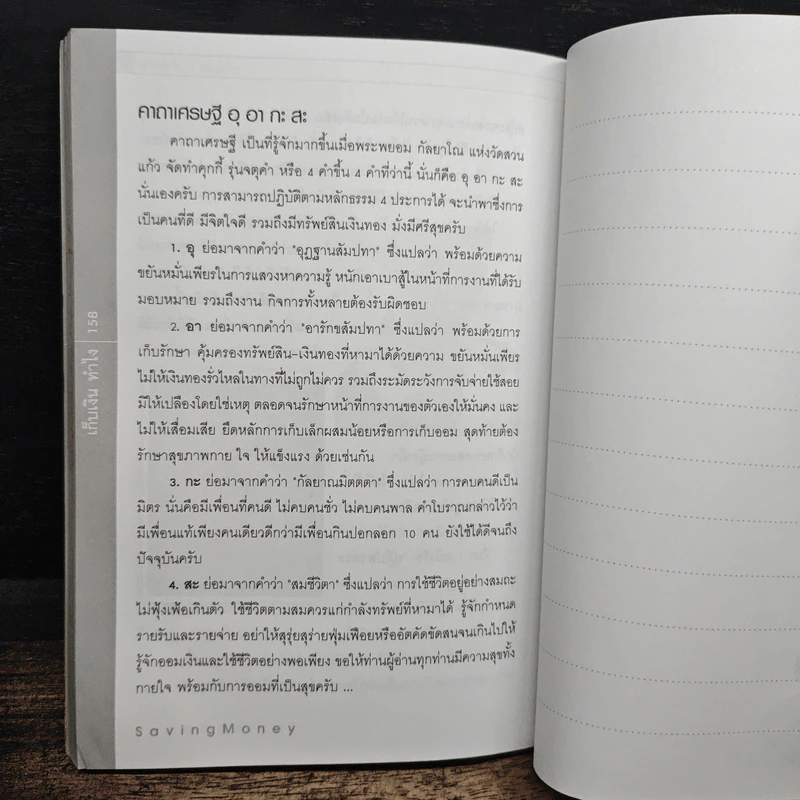 คาถาเศรษฐี อุ อา กะ สะ
คาถาเศรษฐี เป็นที่รู้จักมากขึ้นเมื่อพระพยอม กัลยาโณ แห่งวัดสวน
แก้ว จัดทำคุกกี้ รุ่นจตุคำ หรือ 4 คำขึ้น 4 คำที่ว่านี้ นั่นก็คือ อุ อา กะ สะ
นั่นเองครับ การสามารถปฏิบัติตามหลักธรรม 4 ประการได้ จะนำพาซึ่งการ
เป็นคนที่ดี มีจิตใจดี รวมถึงมีทรัพย์สินเงินทอง มั่งมีศรีสุขครับ
1. อุ ย่อมาจากคำว่า "อุฏฐานสัมปทา" ซึ่งแปลว่า พร้อมด้วยความ
ขยันหมั่นเพียรในการแสวงหาความรู้ หนักเอาเบาสู้ในหน้าที่การงานที่ได้รับ
มอบหมาย รวมถึงงาน กิจการทั้งหลายต้องรับผิดชอบ
2. อา ย่อมาจากคำว่า "อารักขสัมปทา" ซึ่งแปลว่า พร้อมด้วยการ
เก็บรักษา คุ้มครองทรัพย์สิน-เงินทองที่หามาได้ด้วยความ ขยันหมั่นเพียร
ไม่ให้เงินทองรั่วไหลในทางที่ไม่ถูกไม่ควร รวมถึงระมัดระวังการจับจ่ายใช้สอย
มิให้เปลืองโดยใช่เหตุ ตลอดจนรักษาหน้าที่การงานของตัวเองให้มั่นคง และ
ไม่ให้เสื่อมเสีย ยึดหลักการเก็บเล็กผสมน้อยหรือการเก็บออม สุดท้ายต้อง
รักษาสุขภาพกาย ใจ ให้แข็งแรง ด้วยเช่นกัน
3. กะ ย่อมาจากคำว่า "กัลยาณมิตตตา" ซึ่งแปลว่า การคบคนดีเป็น
มิตร นั่นคือมีเพื่อนที่คนดี ไม่คบคนชั่ว ไม่คบคนพาล คำโบราณกล่าวไว้ว่า
มีเพื่อนแท้เพียงคนเดียวดีกว่ามีเพื่อนกินปอกลอก 10 คน ยังใช้ได้ดีจนถึง
ปัจจุบันครับ
4. สะ ย่อมาจากคำว่า "สมชีวิตา" ซึ่งแปลว่า การใช้ชีวิตอยู่อย่างสมถะ
ไม่ฟุ้งเฟ้อเกินตัว ใช้ชีวิตตามสมควรแก่กำลังทรัพย์ที่หามาได้ รู้จักกำหนด
รายรับและรายจ่าย อย่าให้สุรุ่ยสุร่ายฟุ่มเฟือยหรืออัตคัดขัดสนจนเกินไปให้
รู้จักออมเงินและใช้ชีวิตอย่างพอเพียง ขอให้ท่านผู้อ่านทุกท่านมีความสุขทั้ง
กายใจ พร้อมกับการออมที่เป็นสุขครับ ...
SavingMoney
เก็บเงิน ทำไง 158